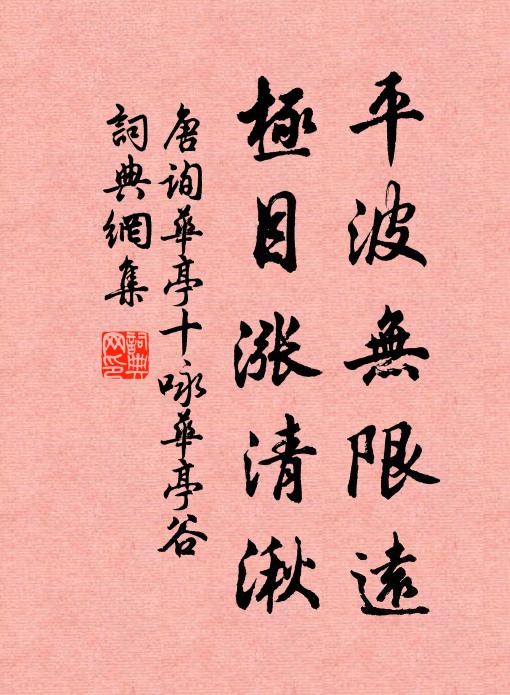 平波無限遠
極目漲清湫
唐詢華亭十咏華亭谷
詞典網集
詞典
网印